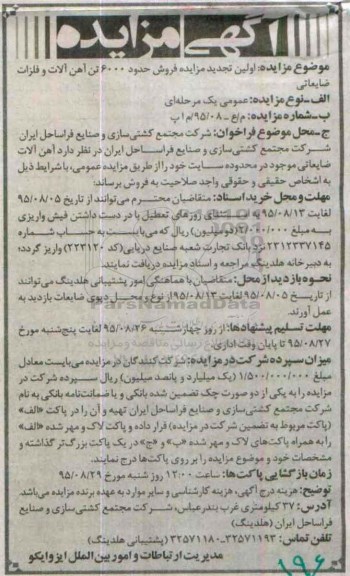 آگهی مزایده
موضوع مزایده: اولین تجدید مزایده فروش حدود ۶۰۰۰ تن آهن آلات و فلزات
ضایعاتی
الف-نوع مزایده: عمومی یک مرحله‌ای
ب-شماره مزایده: م/ع -۹۵/۰۸/م ا پ
ج-محل موضوع فراخوان: شرکت مجتمع کشتی‌سازی و صنایع فراساحل ایران
شرکت مجتمع کشتی‌سازی و صنایع فراساحل ایران در نظر دارد آهن آلات
ضایعاتی موجود در محدوده سایت خود را از طریق مزایده عمومی، با شرایط ذیل
به اشخاص حقیقی و حقوقی واجد صلاحیت به فروش برساند:
مهلت و محل خرید اسناد: متقاضیان محترم می‌توانند از تاریخ ۹۵/۰۸/۰۵
لغایت ۹۵/۰۸/۱۳ به استثنای روزهای تعطیل با در دست داشتن فیش واریزی
به مبلغ ۲/۰۰۰/۰۰۰ (دومیلیون) ریال که می‌بایست به حساب شماره
۲۲۱۲۳۳۷۱۴۵ نزد بانک تجارت شعبه صنایع دریایی(کد ۲۲۳۱۲۰) واریز گردد؛
به دبیرخانه هلدینگ مراجعه و اسناد مزایده دریافت نمایند.
نحوه بازدید از محل: متقاضیان با هماهنگی امور پشتیبانی هلدینگ می‌توانند
از تاریخ ۹۵/۰۸/۰۵ لغایت ۹۵/۰۸/۱۳ از نوع و محل دپوی ضایعات بازدید به
عمل آورند.
ParsNamadData
مهلت تسلیم پیشنهادها: از روز چهارشنبه ۹۵/۰۸/۲۶ لغایت پنج‌شنبه مورخ
۹۵/۰۸/۲۷ تا پایان وقت اداری
میزان سپرده شرکت در مزایده: شرکت کنندگان در مزایده می‌بایست معادل
مبلغ ۱/۵۰۰/۰۰۰/۰۰۰ (یک میلیارد و پانصد میلیون) ریال سپرده شرکت در
مزایده را به یکی از دو صورت چک تضمین شده بانکی و یا ضمانت‌نامه بانکی به نام
شرکت مجتمع کشتی‌سازی و صنایع فراساحل ایران تهیه و آن را در پاکت «الف»
(پاکت مربوط به تضمین شرکت در مزایده) قرار داده و پاکت لاک و مهر شده «الف»
را به همراه پاکت‌های لاک و مهر شده «ب» و «ج» در یک پاکت بزرگ‌تر گذاشته و
مشخصات خود و موضوع مزایده را بر روی پاکت‌ها درج نمایند.
زمان بازگشایی پاکت‌ها: ساعت ۱۲:۰۰ روز شنبه مورخ ۹۵/۰۸/۲۹
توضیح: هزینه درج آگهی، هزینه کارشناسی و سایر موارد به عهده برنده مزایده می‌باشد.
آدرس: ۳۷ کیلومتری غرب بندرعباس، شرکت مجتمع کشتی‌سازی و صنایع
فراساحل ایران (هلدینگ)
تلفن تماس: ۳۲۵۷۱۱۹۳-۳۲۵۷۱۱۸۰ (پشتیبانی هلدینگ)
مدیریت ارتباطات و امور بین الملل ایزوایکو
۱۹۶